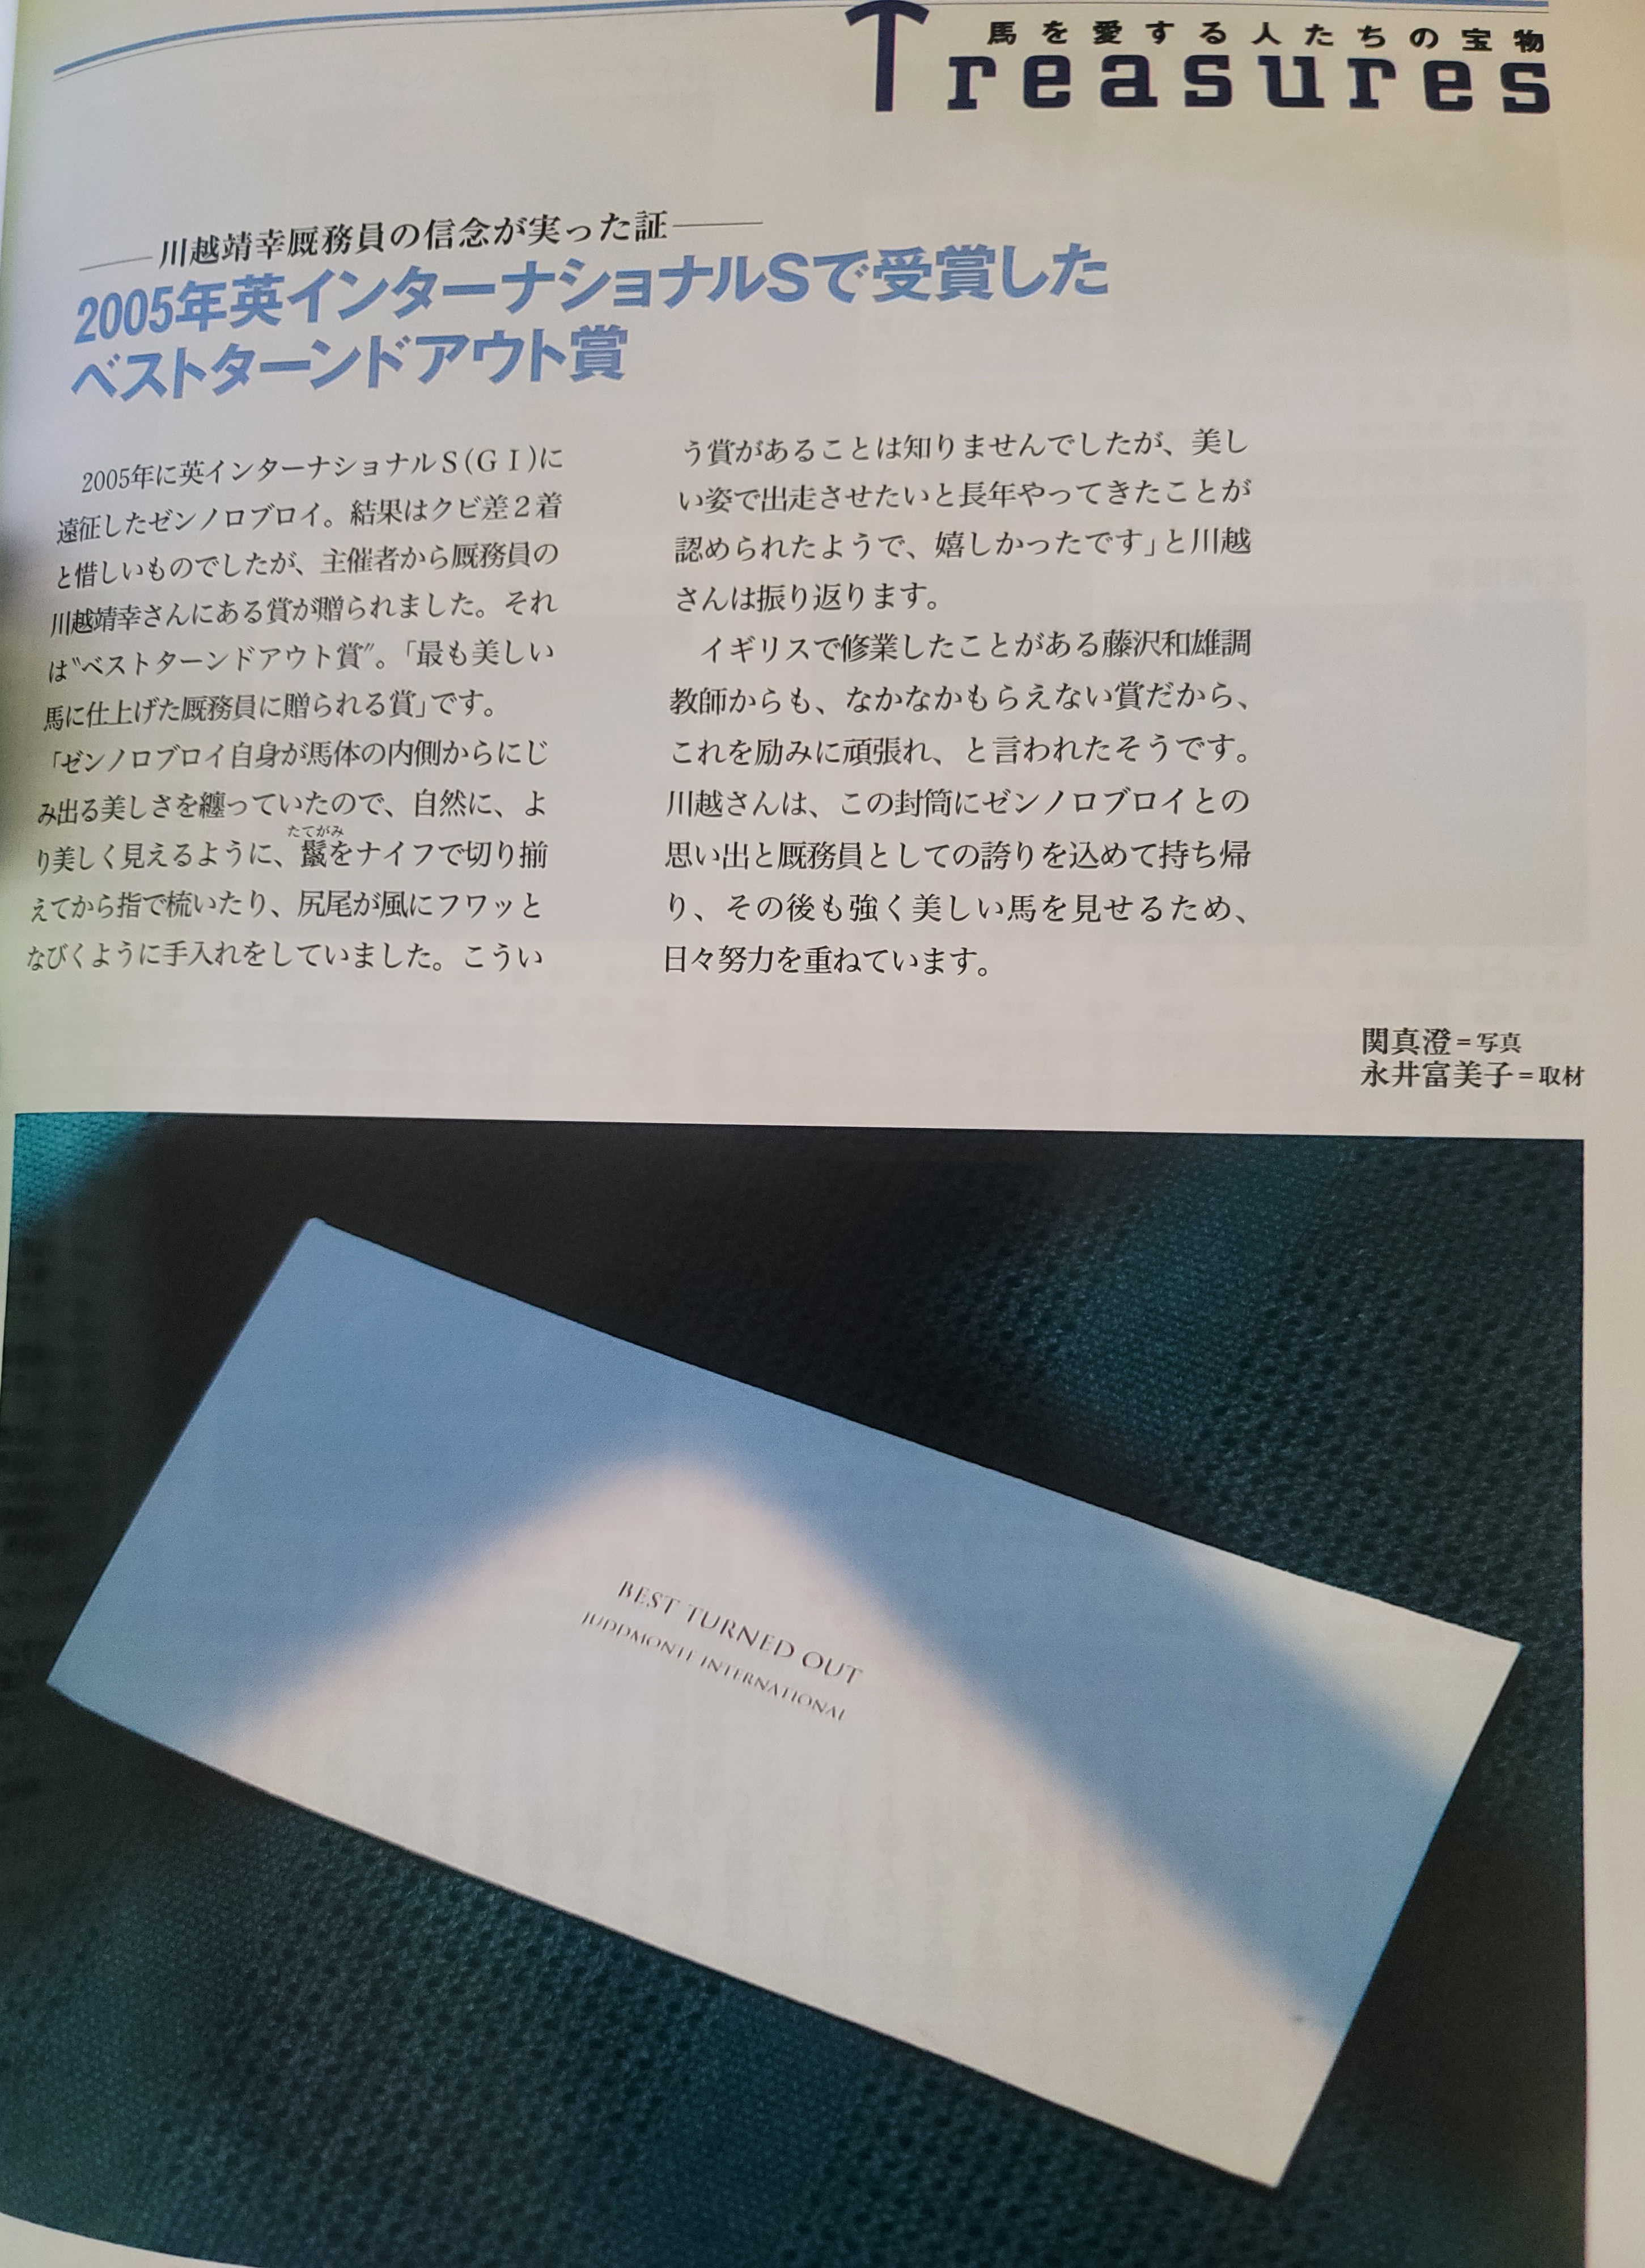 馬を愛する人たちの宝物
Treasures
川越靖幸厩務員の信念が実った証
2005年英インターナショナルSで受賞した
ベストターンドアウト賞
2005年に英インターナショナルS(GI)に
遠征したゼンノロブロイ。結果はクビ差2着
と惜しいものでしたが、主催者から厩務員の
川越靖幸さんにある賞が贈られました。それ
は"ベストターンドアウト賞"。「最も美しい
馬に仕上げた厩務員に贈られる賞」です。
「ゼンノロブロイ自身が馬体の内側からにじ
み出る美しさを纏っていたので、自然に、よ
たてがみ
り美しく見えるように、鬣をナイフで切り揃
えてから指で梳いたり、尻尾が風にフワッと
なびくように手入れをしていました。こうい
う賞があることは知りませんでしたが、美し
い姿で出走させたいと長年やってきたことが
認められたようで、嬉しかったです」と川越
さんは振り返ります。
イギリスで修業したことがある藤沢和雄調
教師からも、なかなかもらえない賞だから、
これを励みに頑張れ、と言われたそうです。
川越さんは、この封筒にゼンノロブロイとの
思い出と厩務員としての誇りを込めて持ち帰
り、その後も強く美しい馬を見せるため、
日々努力を重ねています。
関真澄=写真
永井富美子=取材
BEST TURNED OUT
JUDDMONTE INTERNATIONAL